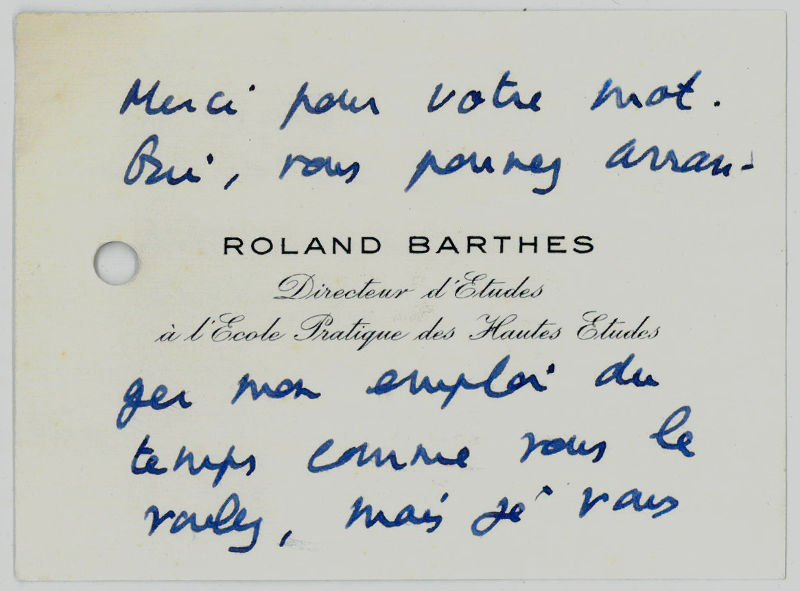 Merci pour votre mot.
Oui, vous pouvez arran-
ROLAND BARTHES
Directeur d'Etudes
à l'Ecole Pratique des Hautes Etudes
ger mon emploi du
temps comme vous le
voulez, mais je vous